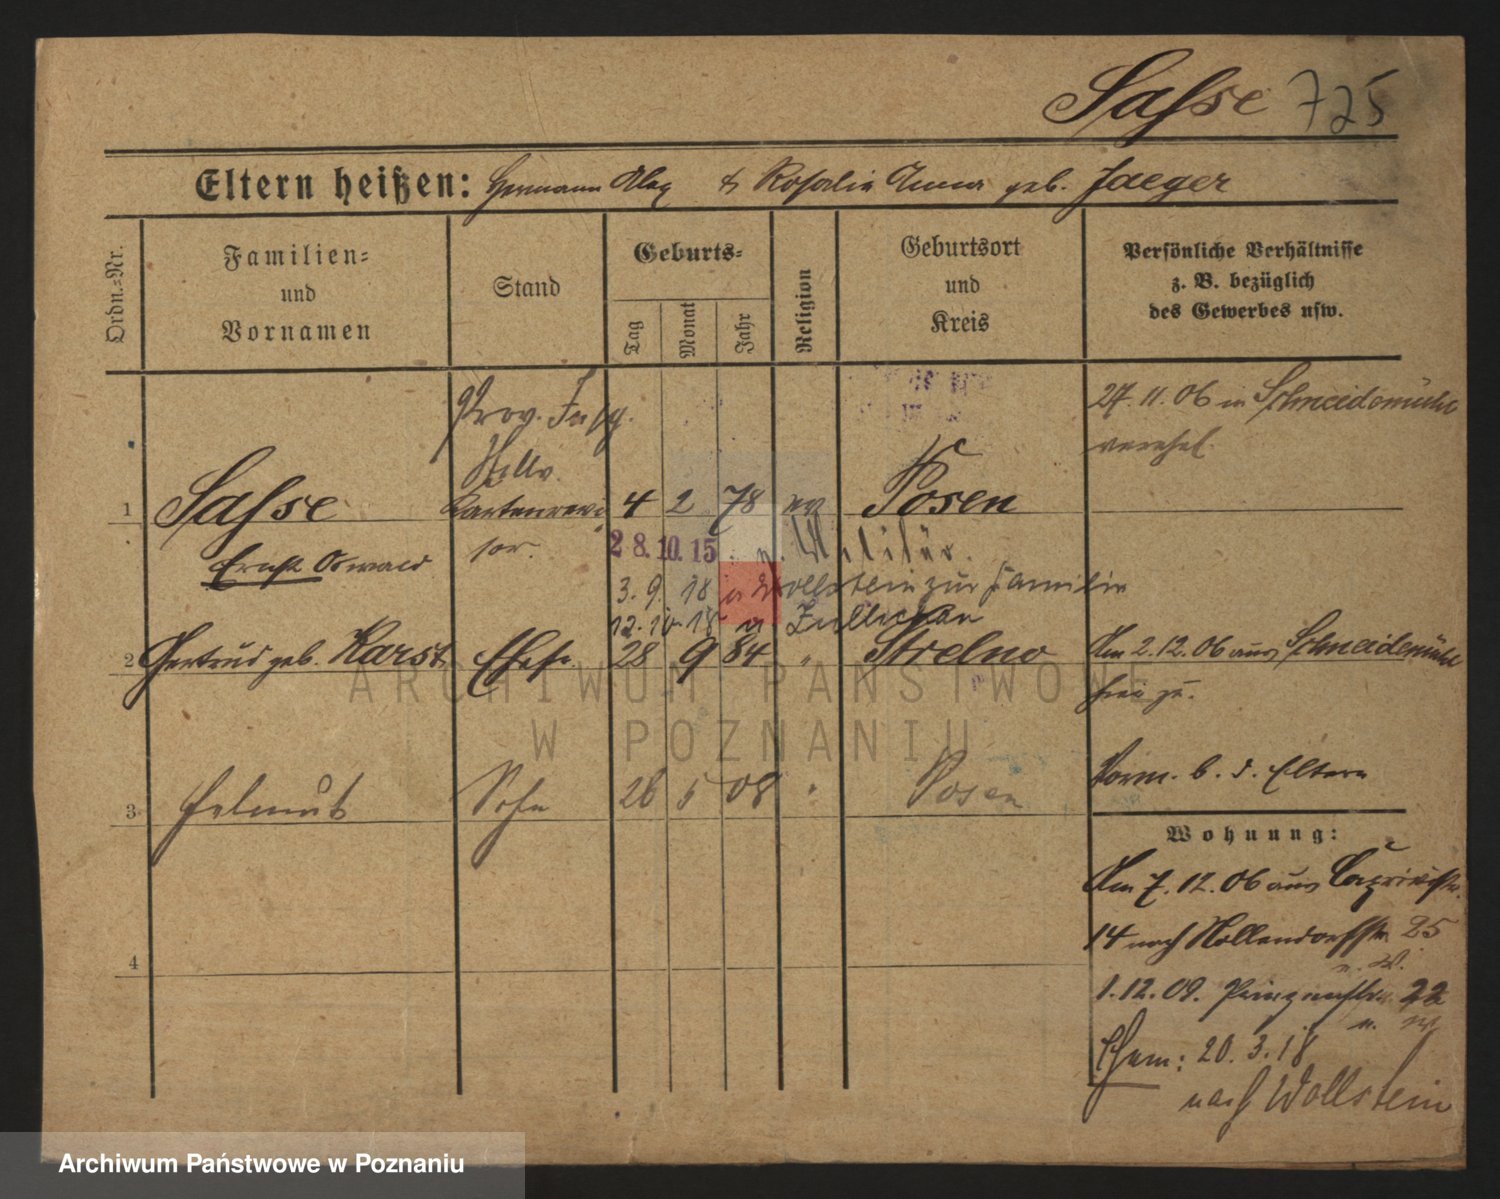 Sasse 725
Eltern heißen: Hermann & Rosalie Anna geb. Jaeger
Ordn.=Nr.
Familien=
und
Vornamen
Stand
Geburts=
Tag
Monat
Jahr
Religion
Geburtsort
und
Kreis
Persönliche Verhältnisse
z. B. bezüglich
des Gewerbes usw.
Prov.
27. 11. 06 in Schneidemühl
verehel.
1 Sasse Kartenrevi= 4 2 78 ev Posen
Ernst Oswald sor. 28.10.15 . z. Militär.
3. 9. 18 n Wollstein zur Familie
12. 10. 18 n Züllichau
2 Gertrud geb. Karst Ehefr. 28 9 84 " Strelno Am 2. 12. 06 aus Schneidemühl
hierzu.
3 Helmut Sohn 26 5 08 " Posen Vorm. b. d. Eltern
Wohnung:
Am 7. 12. 06 aus Caprivistr.
14 nach Nollendorfstr. 25
n. W.
1. 12. 09. Prinzenstr. 22
n. W
4
Ehem: 20. 3. 18
nach Wollstein
ARCHIWUM PAŃSTWOWE
W POZNANIU
Archiwum Państwowe w Poznaniu